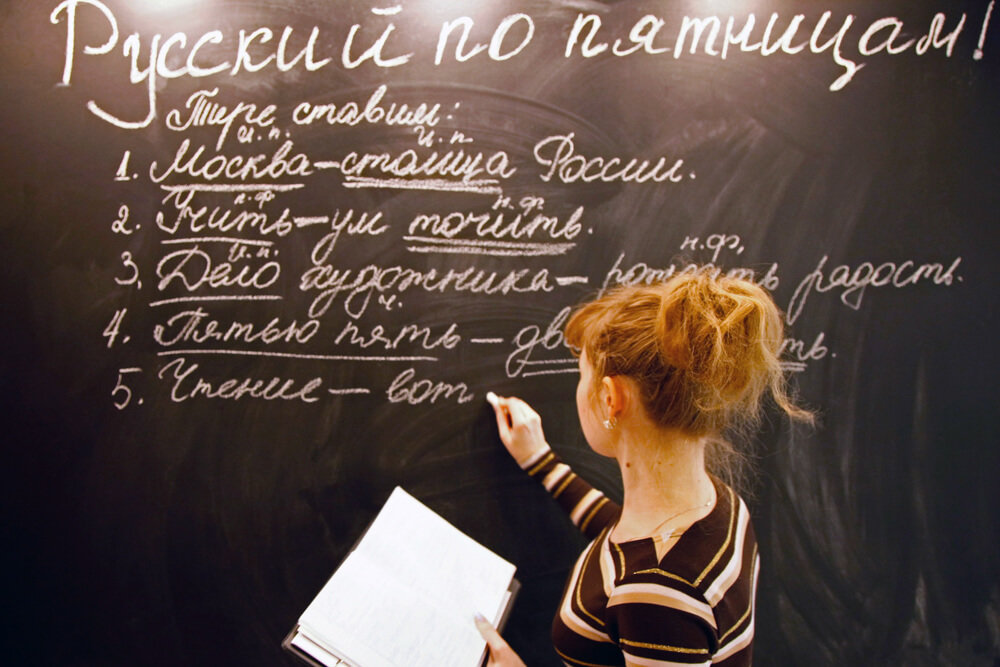 Русский по пятницам!
Тире ставим:
и.п. и.п.
1. Москва – столица России.
н.ф. н.ф.
2. Учить – ум точить.
и.п. н.ф.
3. Дело художника – рождать радость.
ч.
4. Пятью пять –
5. Чтение – вот